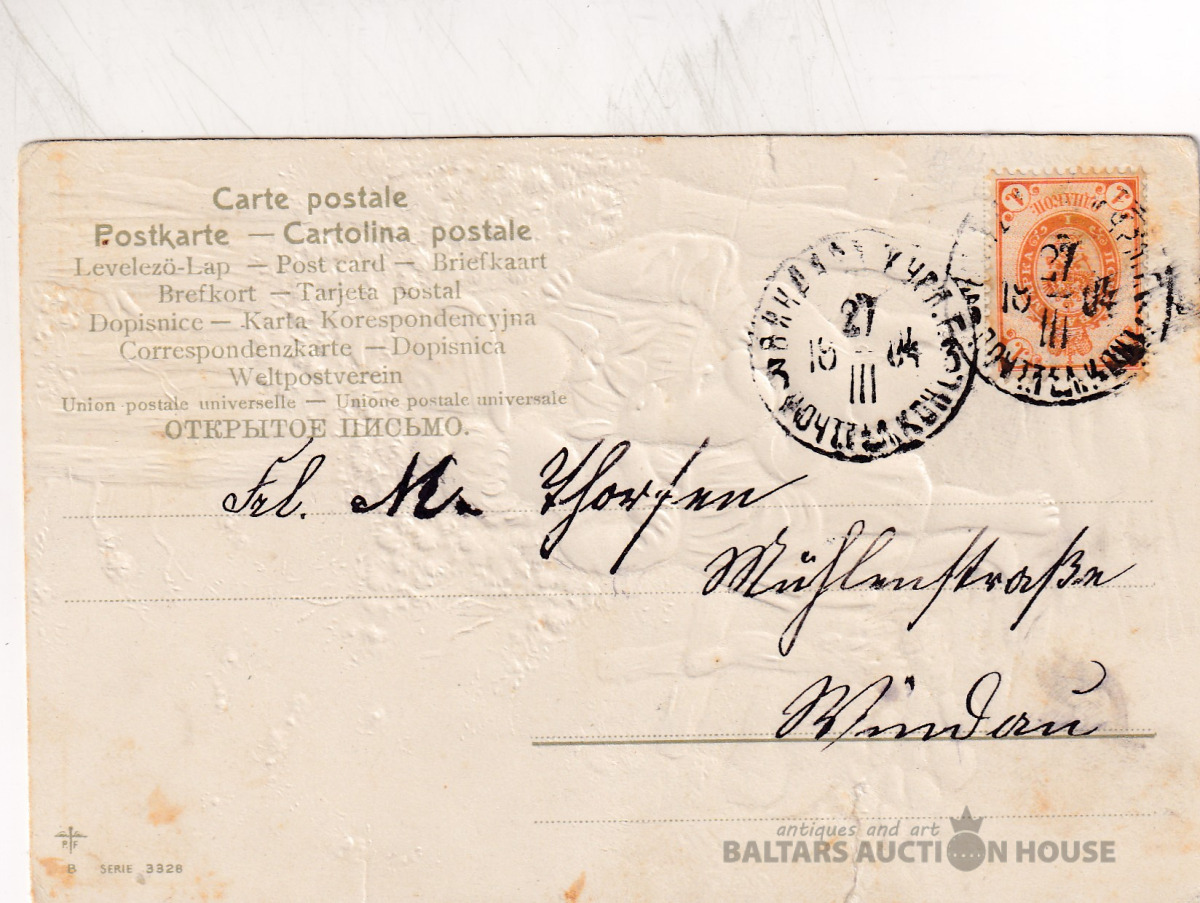 Carte postale
Postkarte — Cartolina postale
Levelező-Lap — Post card — Briefkaart
Brefkort — Tarjeta postal
Dopisnice — Karta Korespondencyjna
Correspondenzkarte — Dopisnica
Weltpostverein
Union postale universelle — Unione postale universale
ОТКРЫТОЕ ПИСЬМО.
27
18 04
III
27
18 04
III
Frl. M. Thorsen
Mühlenstraße
Windau
P F
B SERIE 3328
antiques and art
BALTARS AUCTION HOUSE